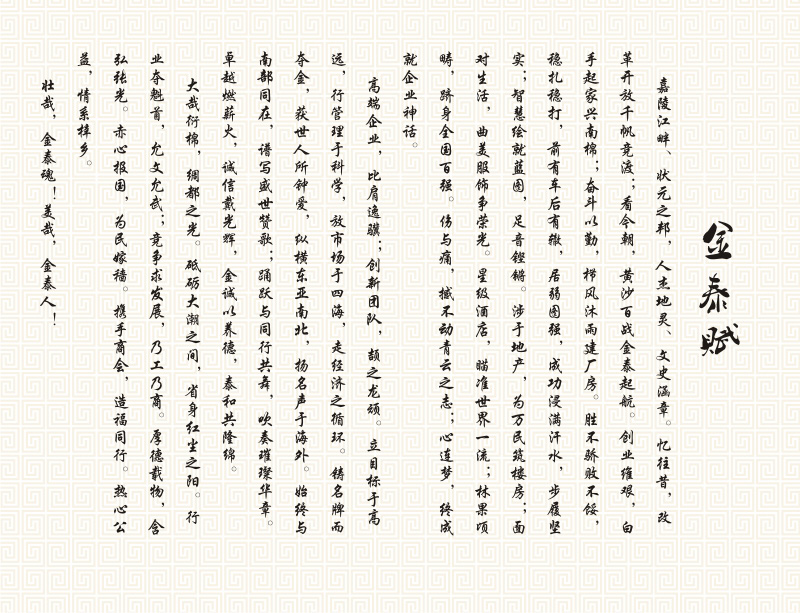 金泰赋
嘉陵江畔、状元之邦，人杰地灵、文史涵章。忆往昔，改
革开放千帆竞渡；看今朝，黄沙百战金泰起航。创业维艰，白
手起家兴南棉；奋斗以勤，栉风沐雨建厂房。胜不骄败不馁，
稳扎稳打，前有车后有辙，居弱图强，成功浸满汗水，步履坚
实；智慧绘就蓝图，足音铿锵。涉于地产，为万民筑楼房；面
对生活，曲美服饰争荣光。星级酒店，瞄准世界一流；林果顷
畴，跻身全国百强。伤与痛，撼不动青云之志；心连梦，终成
就企业神话。
高端企业，比肩逸骥；创新团队，颉之龙颃。立目标于高
远，行管理于科学，放市场于四海，走经济之循环。铸名牌而
夺金，获世人所钟爱，纵横东亚南北，扬名声于海外。始终与
南部同在，谱写盛世赞歌；踊跃与同行共舞，吹奏璀璨华章。
卓越燃薪火，诚信戴光辉，金诚以养德，泰和共隆绵。
大哉衍棉，绸都之光。砥砺大潮之间，省身红尘之阳。行
业夺魁首，允文允武；竞争求发展，乃工乃商。厚德载物，含
弘张光。赤心报国，为民嫁穑。携手商会，造福同行。热心公
益，情系梓乡。
壮哉，金泰魂！美哉，金泰人！